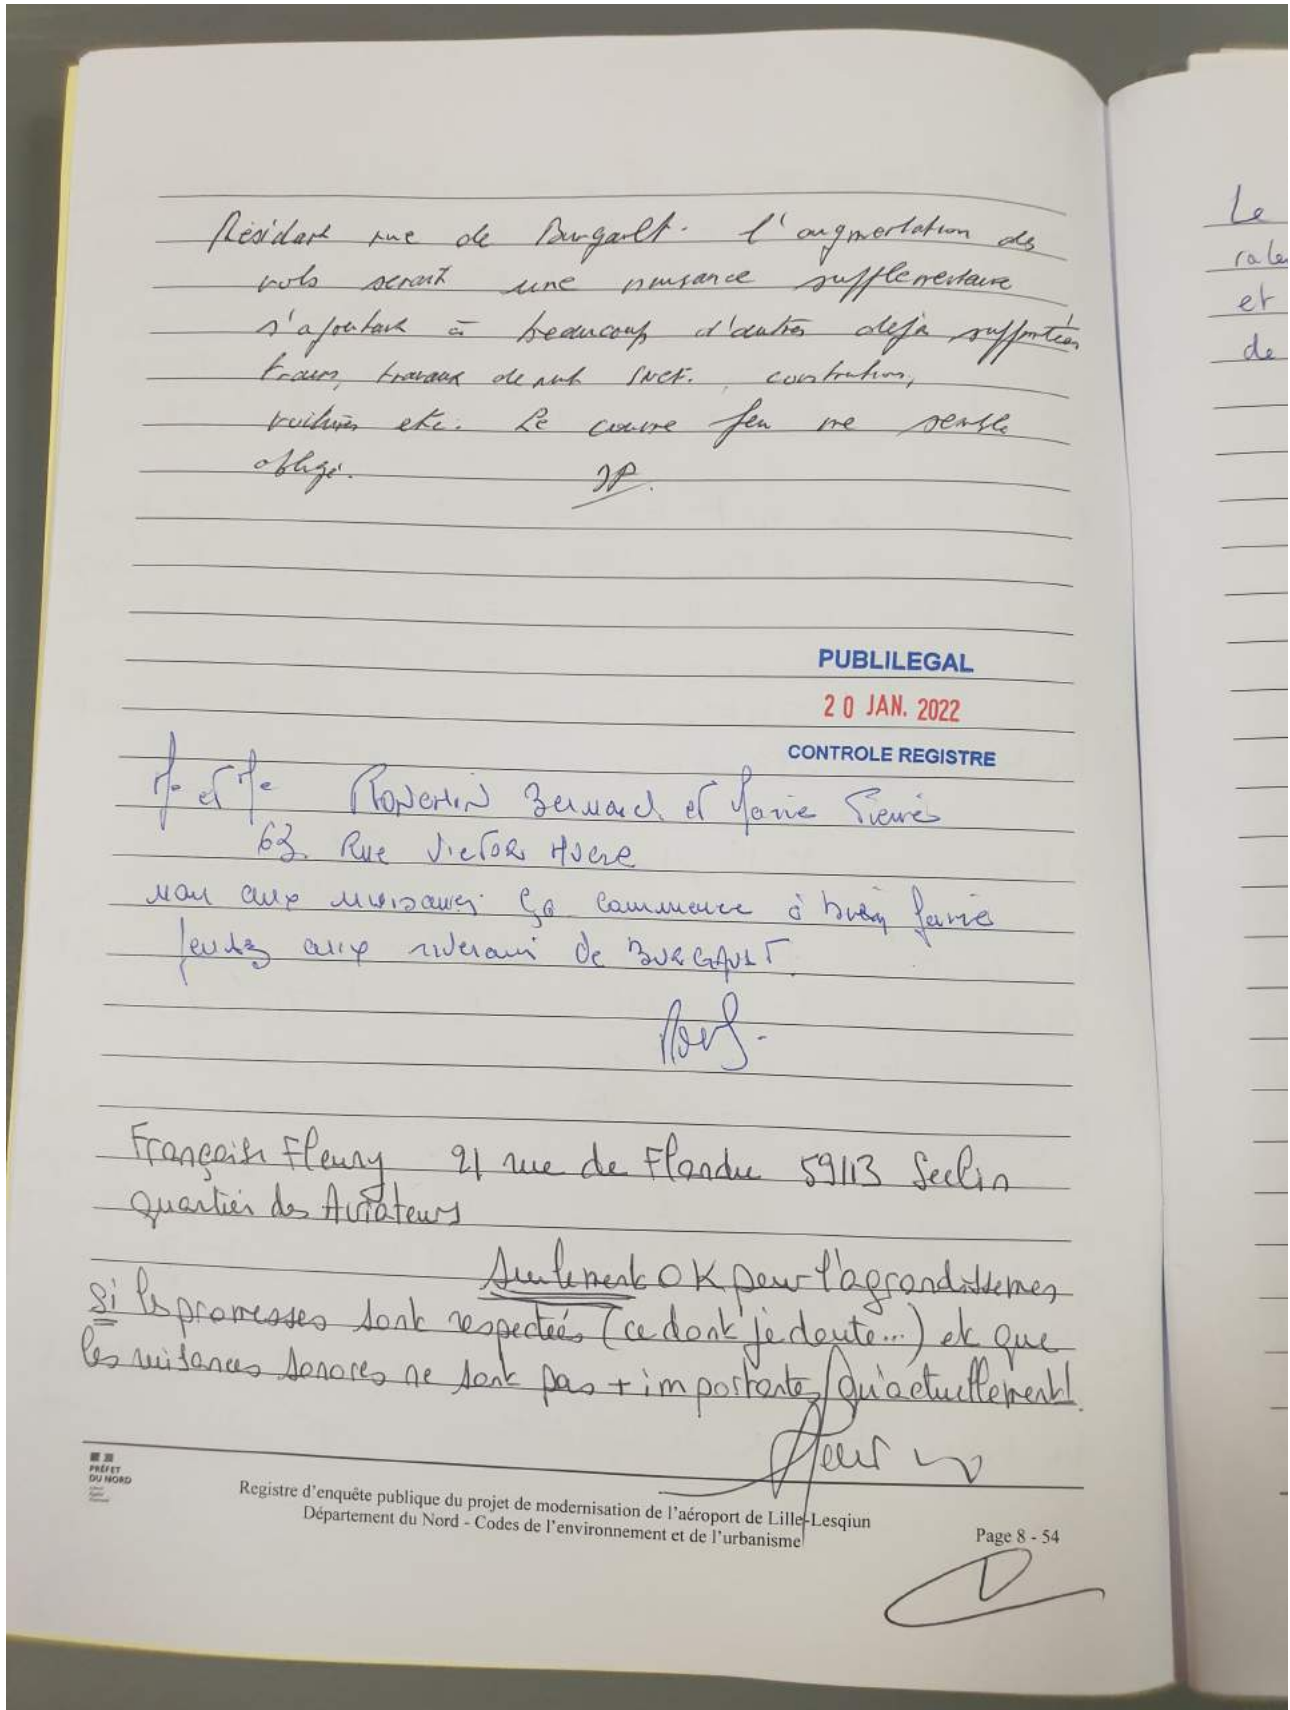 Résidant rue de Burgault. l'augmentation des
vols serait une nuisance supplementaire
s'ajoutant à beaucoup d'autres deja supportées
trains, travaux de nuit SNCF.
voitures etc. Le couvre feu me semble
obligé. JP.
PUBLILEGAL
20 JAN. 2022
CONTROLE REGISTRE
et Bernard et Marie
63. Rue Victor
non aux nuisances ça commence à bien faire
aux riverains de BURGAULT.
Françoise Fleury 21 rue de Flandre 59113 Seclin
quartier des Aviateurs
Seulement OK pour l'agrandissement
si les promesses sont respectées (ce dont je doute...) et que
les nuisances sonores ne sont pas + importantes qu'actuellement!
PRÉFET
DU NORD
Registre d'enquête publique du projet de modernisation de l'aéroport de Lille-Lesqiun
Département du Nord - Codes de l'environnement et de l'urbanisme
Page 8 - 54
Le
et
de